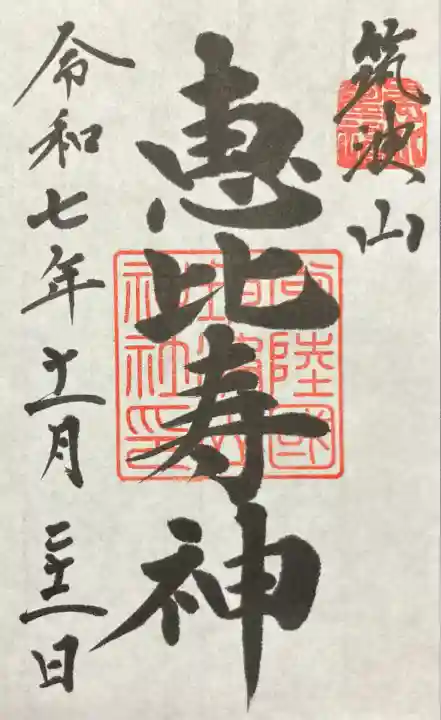 筑波山
恵比寿神
令和七年十一月二十一日